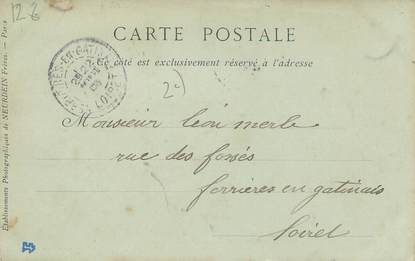 12-6
CARTE POSTALE
côté est exclusivement réservé à l'adresse
FERRIÈRES-EN-GATINAIS
LOIRET
2-)
Monsieur Léon Merle
rue des fossés
ferrières en gatinais
Loiret
Etablissements Photographiques de NEURDEIN Frères. — Paris